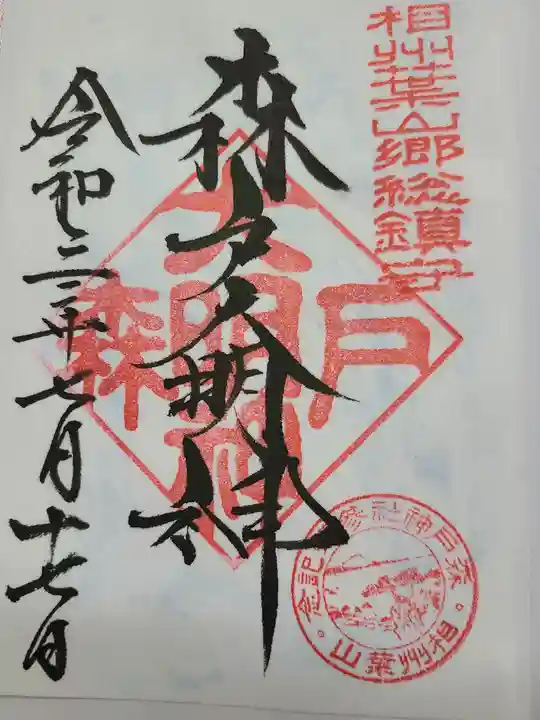 相州葉山郷総鎮守
森戸大明神
令和三年七月十七日
森戸大明神
森戸神社
記念
相州葉山